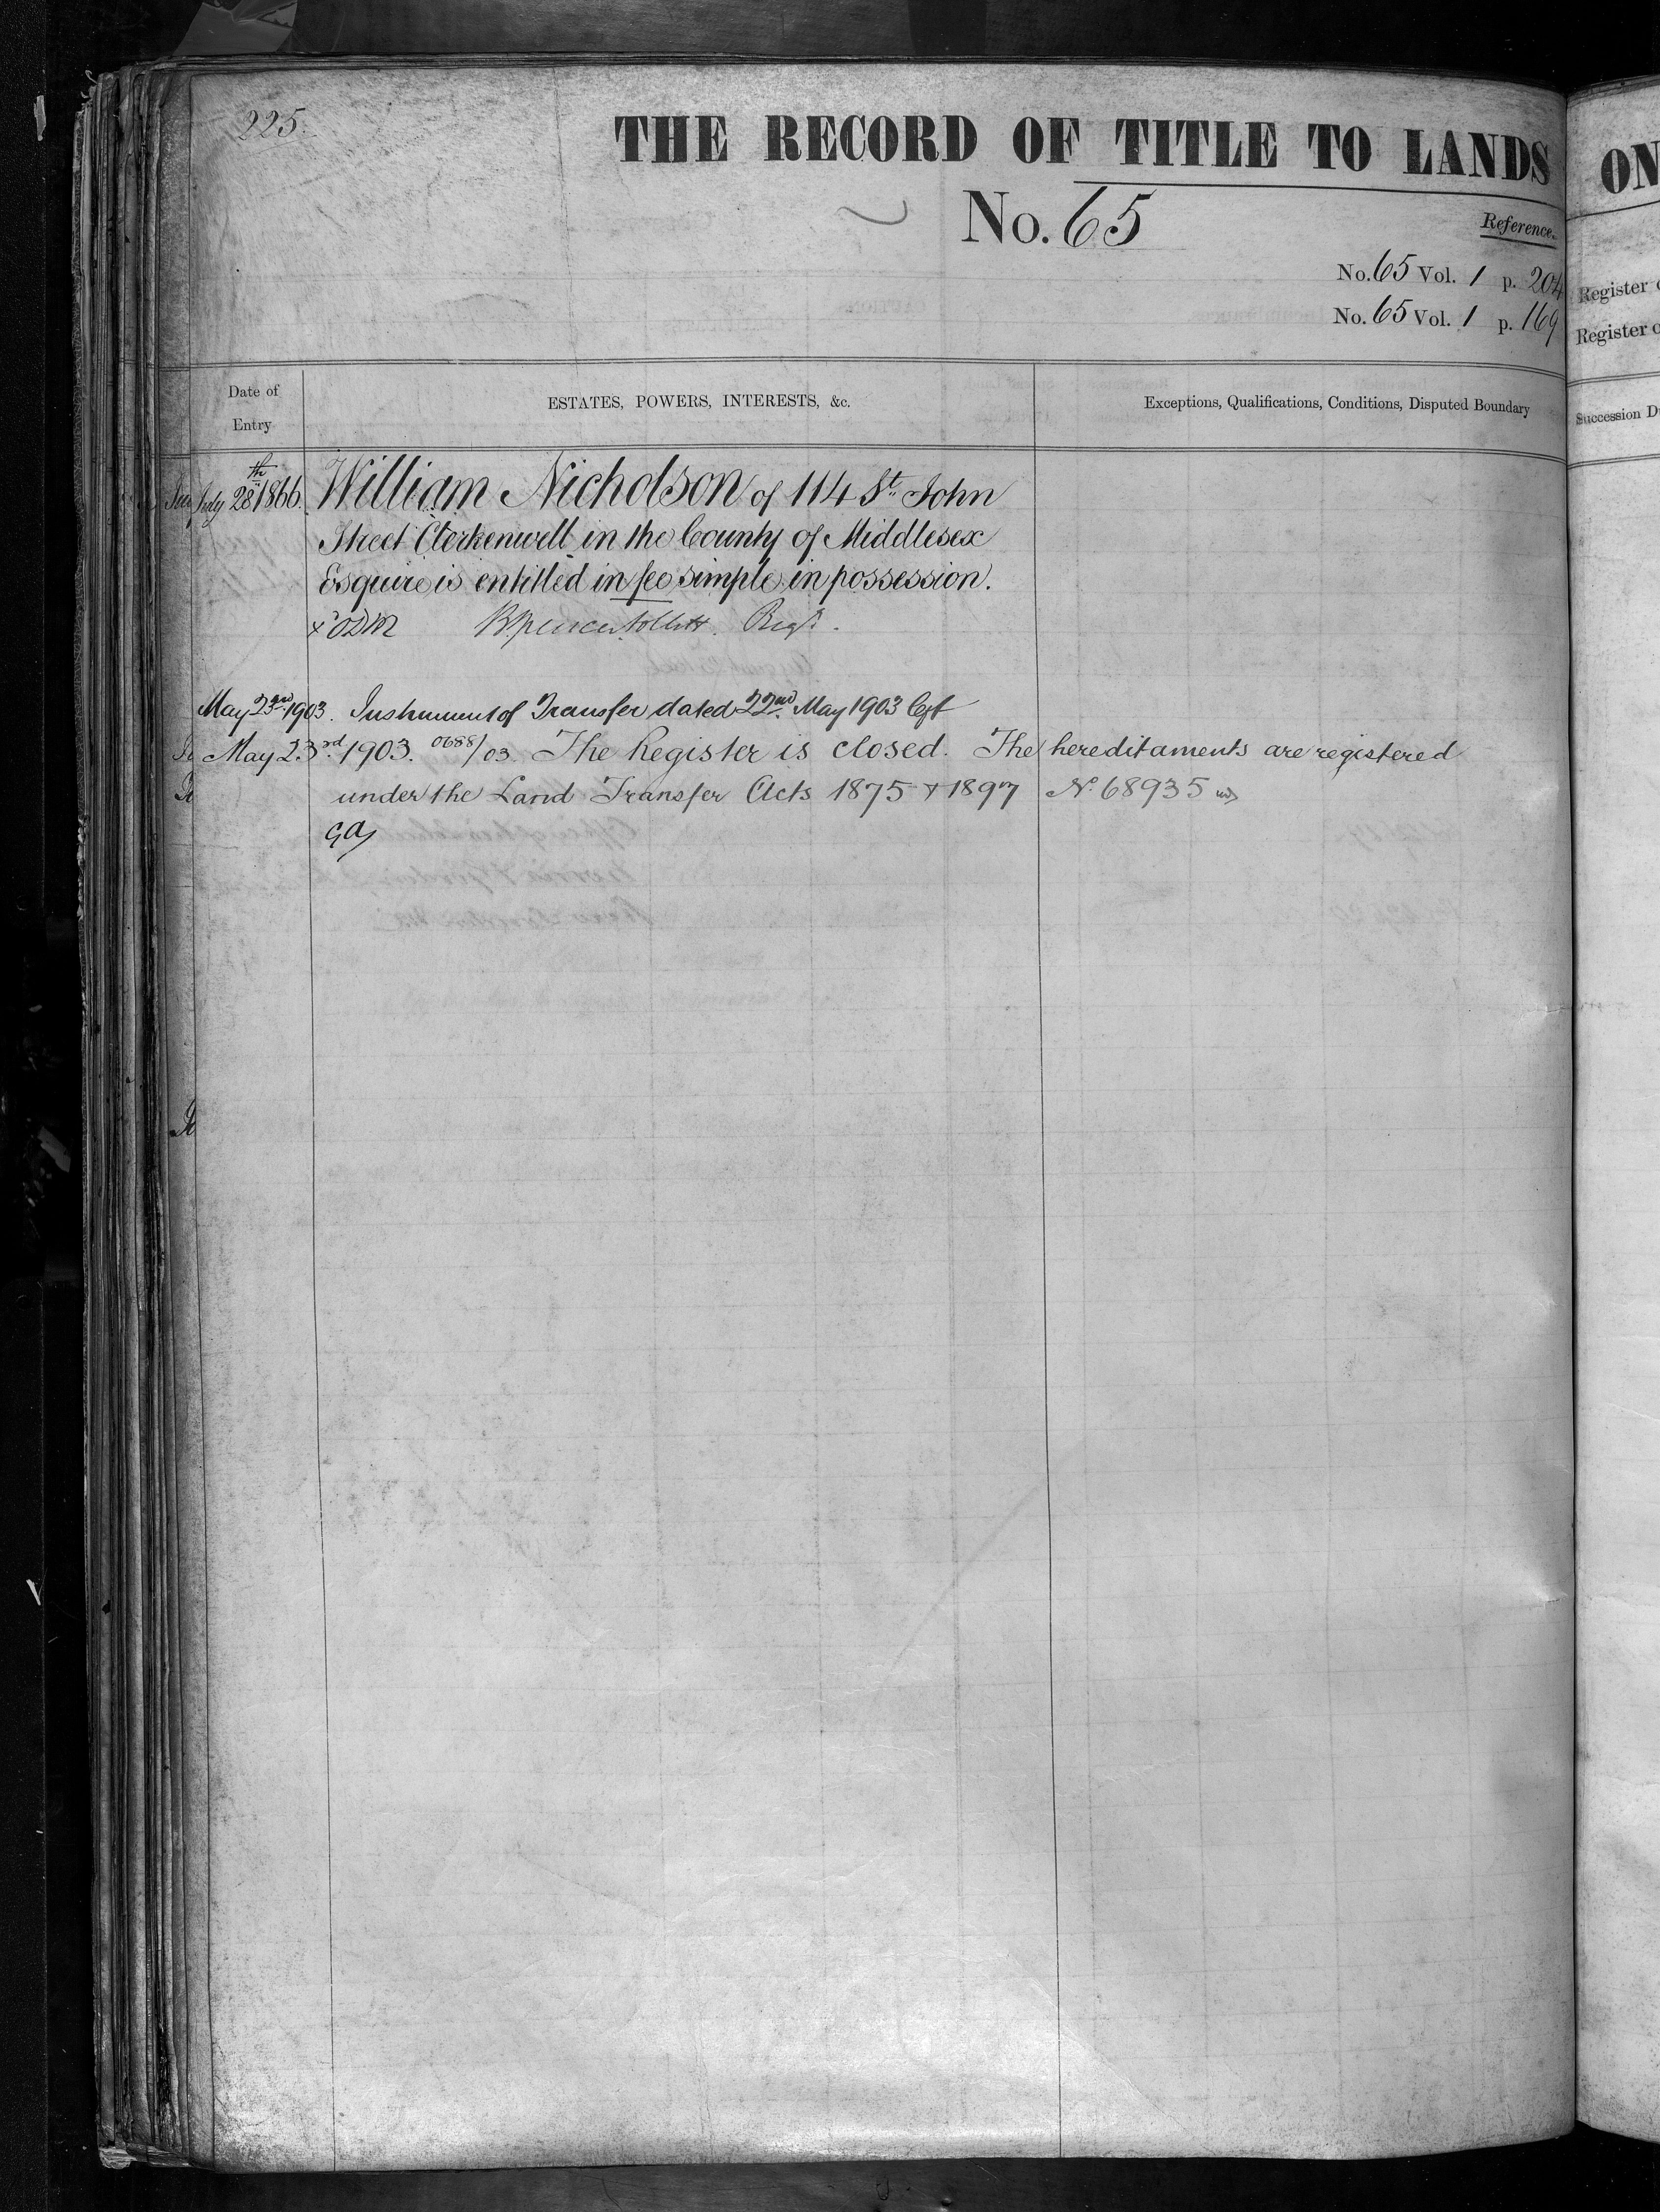 225.
THE RECORD OF TITLE TO LANDS
ON
No. 65
Reference.
No. 65 Vol. 1 p. 204
Register
No. 65 Vol. 1 p. 169
Register
Date of Entry
ESTATES, POWERS, INTERESTS, &c.
Exceptions, Qualifications, Conditions, Disputed Boundary
Succession
July 28th 1866. William Nicholson of 114 St. John
Street Clerkenwell in the County of Middlesex
Esquire is entitled in fee simple in possession.
Regr.
May 23rd 1903. Instrument of Transfer dated 22nd May 1903 left
May 23rd 1903. 0688/03 The Register is closed. The hereditaments are registered
under the Land Transfer Acts 1875 & 1897 No. 68935